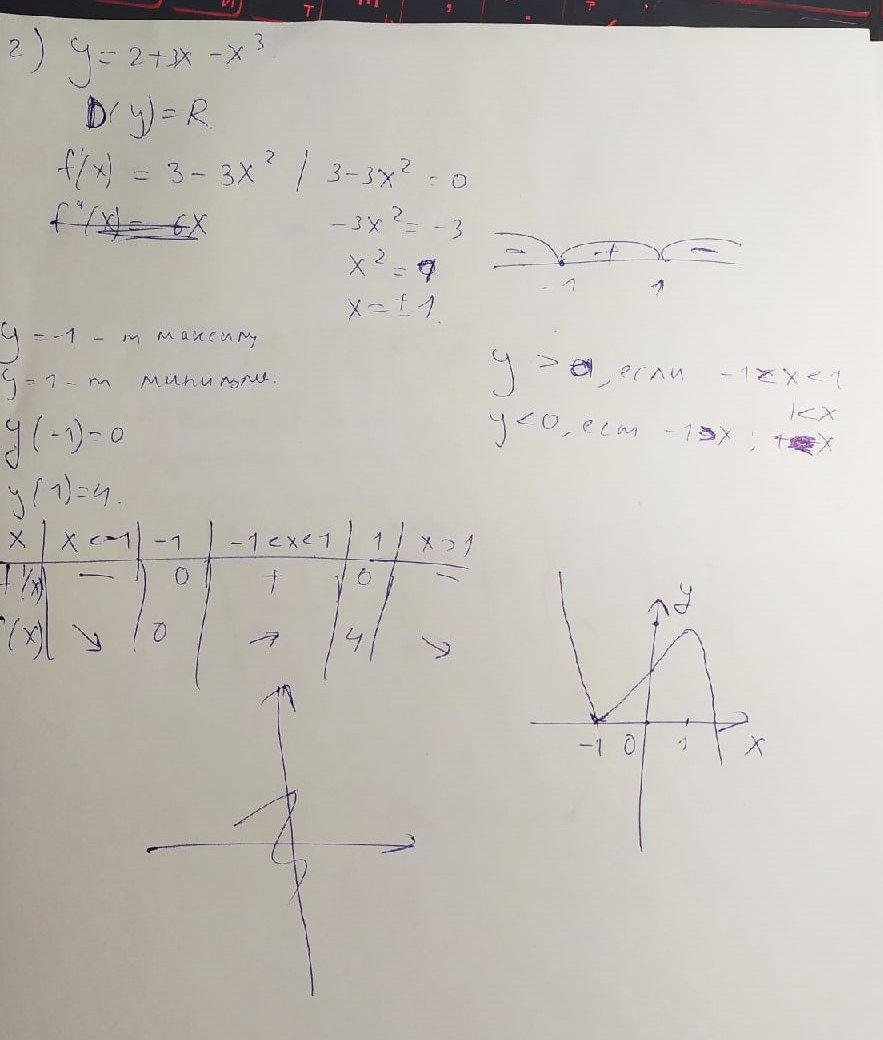 2) y = 2+3x - x³
D(y) = R
f'(x) = 3 - 3x² / 3-3x² = 0
f''(x) = 6x
-3x² = -3
x² = 1
x = ±1.
- + -
-1 1
y = -1 - т максим
y = 1 - т миним.
y(-1) = 0
y(1) = 4.
y > 0, если -1<x<1
1<x
y < 0, есл -1>x ;
x | x<-1 | -1 | -1<x<1 | 1 | x>1
f'(x) | - | 0 | + | 0 | -
(x) | ↘ | 0 | → | 4 | ↘
y
-1 0 1 x